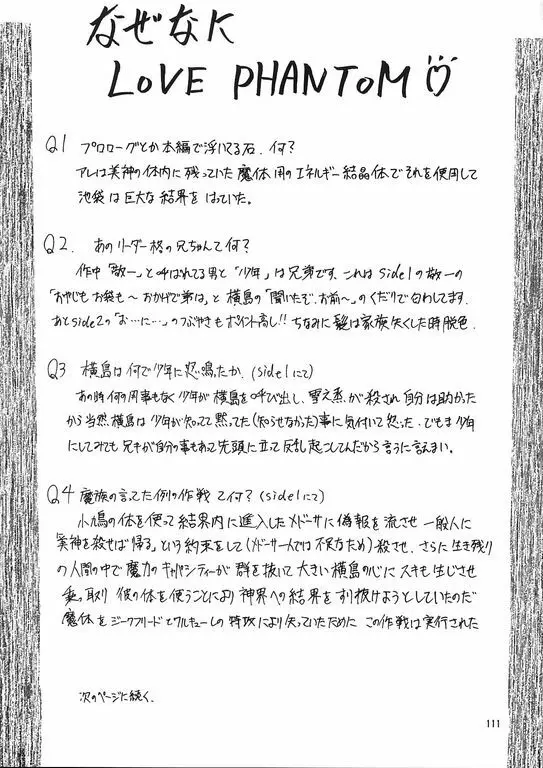 なぜなに
LOVE PHANTOM
Q1 プロローグとか本編で浮いてる石、何?
アレは美神の体内に残っていた魔体用のエネルギー結晶体でそれを使用して
池袋は巨大な結界をはっていた。
Q2. あのリーダー格の兄ちゃんて何?
作中「敬一」と呼ばれてる男と「少年」は兄弟です。これはside1の敬一の
「おやじもお袋も〜おかげで弟は」と横島の「聞いたぞ、お前〜」のくだりで匂わしてます。
あとside2の「お…に…」のつぶやきもポイント高し!!ちなみに髪は家族失くした時脱色.
Q3 横島は何で少年に怒鳴ったか。(side1にて)
あの時何の用事もなく少年が横島を呼び出し、雪之丞が殺され自分は助かった
から当然横島は少年が知ってて黙ってた(知らせなかった)事に気付いて怒った。でもま少年
にしてみても兄キが自分の事もあって先頭に立って反乱起こしてんだから言うに言えまい。
Q4 魔族の言てた例の作戦て何?(side1にて)
小鳩の体を使って結界内に進入したメドーサに偽報を流させ一般人に
「美神を殺せば帰る」という約束をして(メドーサ一人では不足なため)殺させ、さらに生き残り
の人間の中で魔力のキャパシティーが群を抜いて大きい横島の心にスキを生じさせ
乗っ取り 彼の体を使うことにより神界への結界をすり抜けようとしていたのだ
魔体をジークフリードとワルキューレの特攻により失っていたために この作戦は実行された
次のページに続く.
111